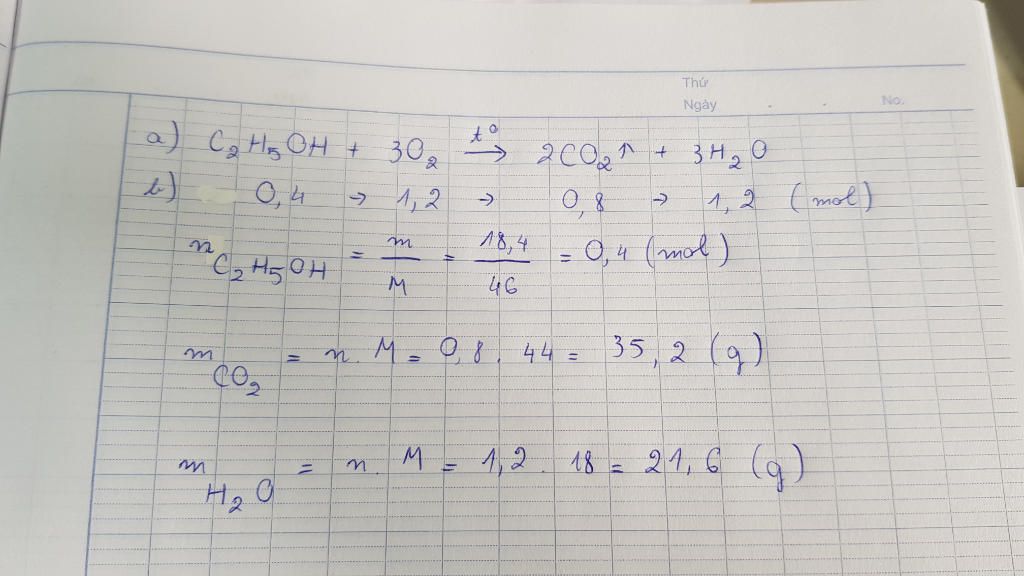 Thứ
Ngày . . No.
a) C₂H₅OH + 3O₂ →(t⁰) 2CO₂↑ + 3H₂O
b) 0,4 → 1,2 → 0,8 → 1,2 (mol)
n C₂H₅OH = m/M = 18,4/46 = 0,4 (mol)
m CO₂ = n. M = 0,8. 44 = 35,2 (g)
m H₂O = n. M = 1,2. 18 = 21,6 (g)